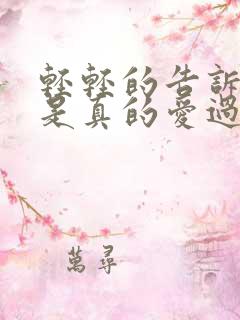 輕輕的告訴
是真的愛過
萬尋